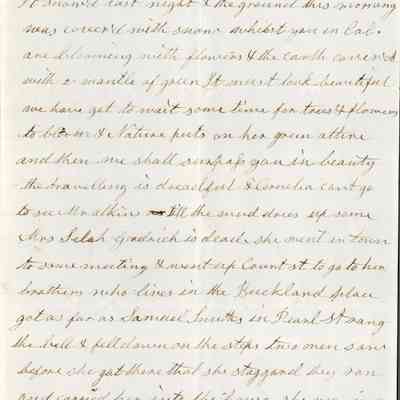 It snow'd last night & the ground this morning
was cover'd with snow whilst you in Cal.
are blooming with flowers & the earth cover'd
with a mantle of green It must look beautiful
we have got to wait some time for trees & flowers
to bloom & Nature puts on her green attire
and then we shall surpass you in beauty
the travelling is dreadful & Cornelia cant go
to see Mr till the mud dries up some
Mrs Selah Goodrich is dead. she went in town
to some meeting & went up Court st to go to her
brothers who lives in the Buckland place
got as far as Samuel Smiths in Pearl St rang
the bell & fell down on the steps two men saw
before she got there that she staggerd they ran
and carried her into the house she was in a